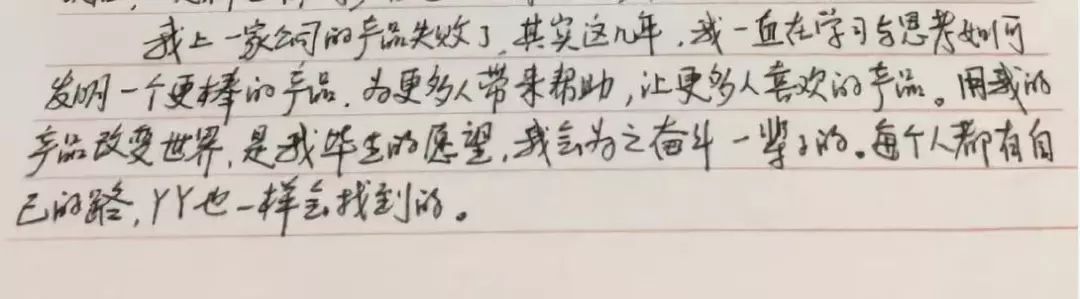 我上一家公司的产品失败了,其实这几年,我一直在学习与思考如何
发明一个更棒的产品,为更多人带来帮助,让更多人喜欢的产品。用我的
产品改变世界,是我毕生的愿望,我会为之奋斗一辈子的。每个人都有自
己的路,YY也一样会找到的。